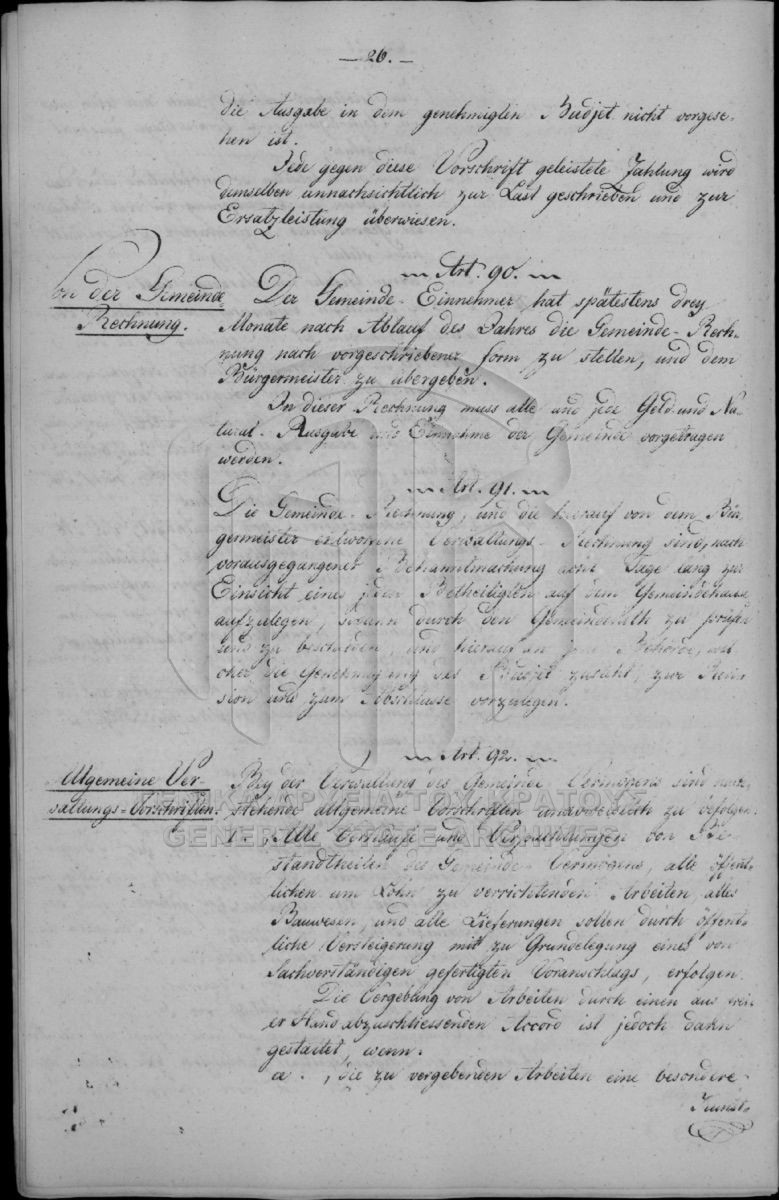 — 26. —
die Ausgabe in dem genehmigten Budjet nicht vorgese-
hen ist.
Jede gegen diese Vorschrift geleistete Zahlung wird
demselben unnachsichtlich zur Last geschrieben und zur
Ersatzleistung überwiesen.
Art. 90.
Von der Gemeinde
Rechnung.
Der Gemeinde-Einnehmer hat spätestens drey
Monate nach Ablauf des Jahres die Gemeinde-Rech-
nung nach vorgeschriebener form zu stellen, und dem
Bürgermeister zu übergeben.
In dieser Rechnung muss alle und jede Geld und Na-
tural-Ausgabe und Einnahme der Gemeinde vorgetragen
werden.
Art. 91.
Die Gemeinde-Rechnung, und die hierauf von dem Bür-
germeister entworfene Verwaltungs-Rechnung sind, nach
vorausgegangener Bekanntmachung acht Tage lang zur
Einsicht eines jeden Betheiligten auf dem Gemeindehause
aufzulegen, sodann durch den Gemeinderath zu prüfen
und zu bescheiden, und hierauf an jene Behörde, wel-
cher die Genehmigung des Budjet zusteht, zur Revi-
sion und zum Abschlusse vorzulegen.
Art. 92.
Allgemeine Ver-
waltungs-Vorschriften.
Bey der Verwaltung des Gemeinde Vermögens sind nach-
stehende allgemeine Vorschriften unabweislich zu befolgen.
ΓΕΝΙΚΑ ΑΡΧΕΙΑ ΤΟΥ ΚΡΑΤΟΥΣ
GENERAL STATE ARCHIVES
1., Alle Verkäufe und Verpachtungen von Be-
standtheilen des Gemeinde-Vermögens, alle öffent-
lichen um Lohn zu verrichtenden Arbeiten, alles
Bauwesen, und alle Lieferungen sollen durch öffent-
liche Versteigerung mit zu Grundelegung eines von
Sachverständigen gefertigten Voranschlags, erfolgen.
Die Vergebung von Arbeiten durch einen aus frei-
er Hand abzuschliessenden Accord ist jedoch dann
gestattet, wenn.
a., die zu vergebenden Arbeiten eine besondere
Kunst-